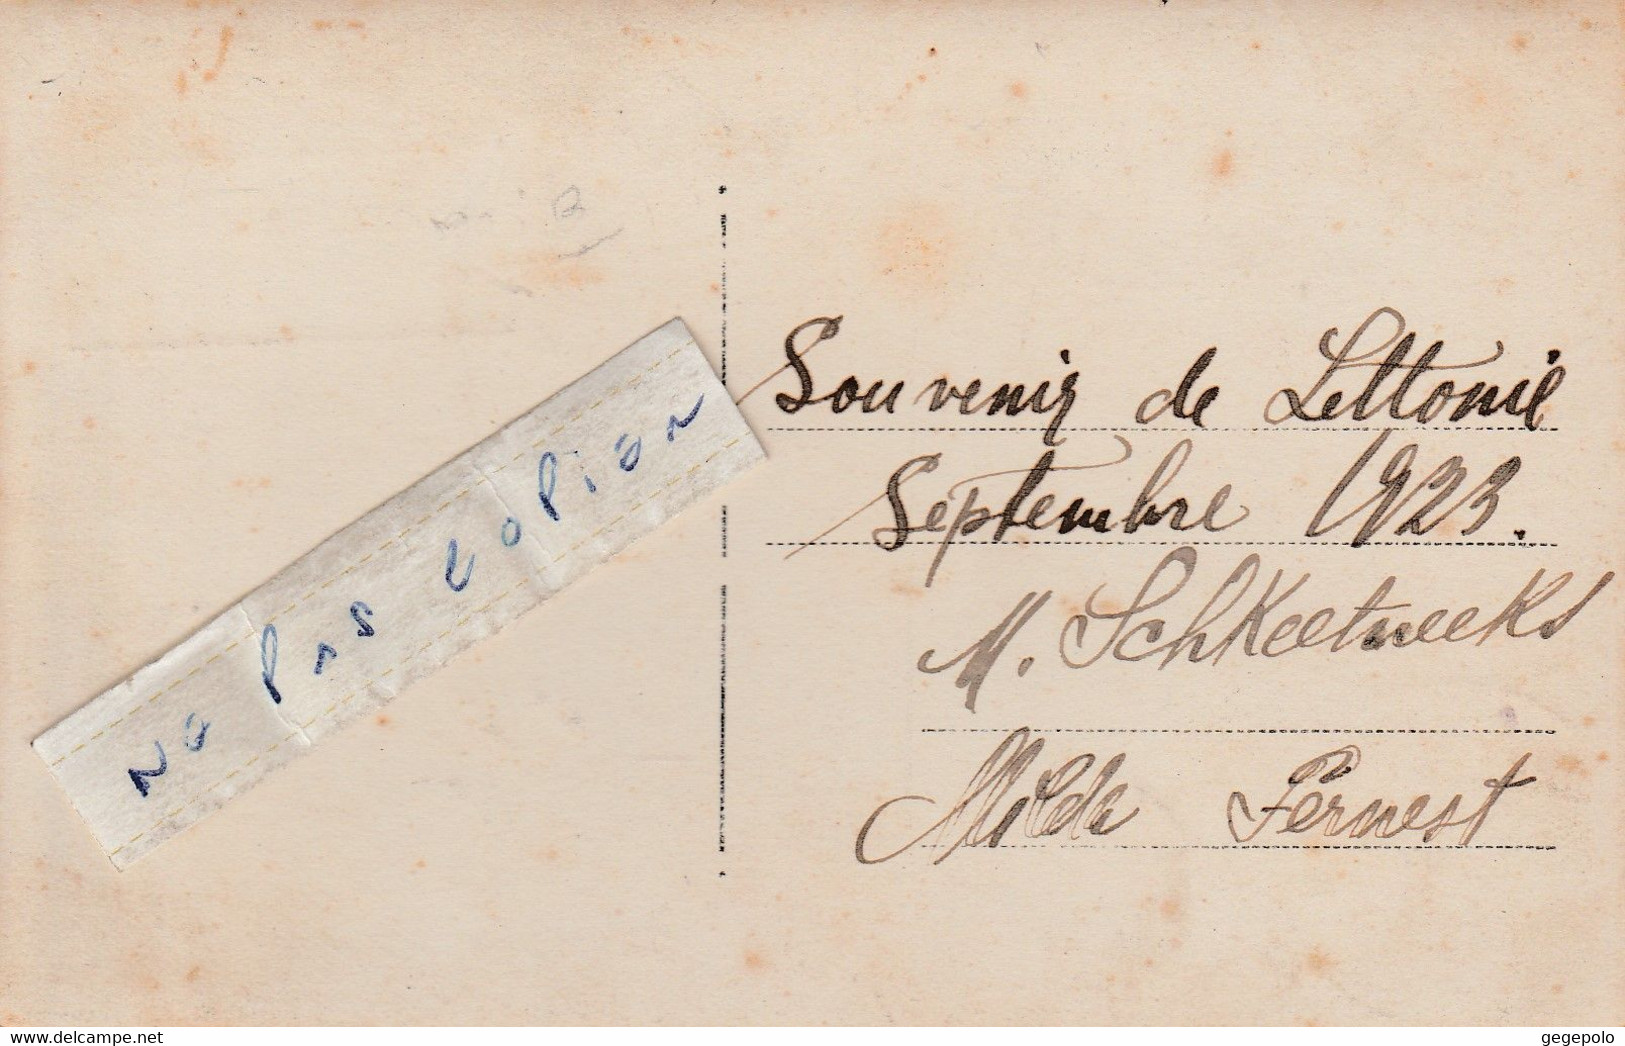 No Pas copion
Souvenir de Lettonie
Septembre 1923.
M. Schkeetneeks
Milda Fernest
www.delcampe.net
gegepolo